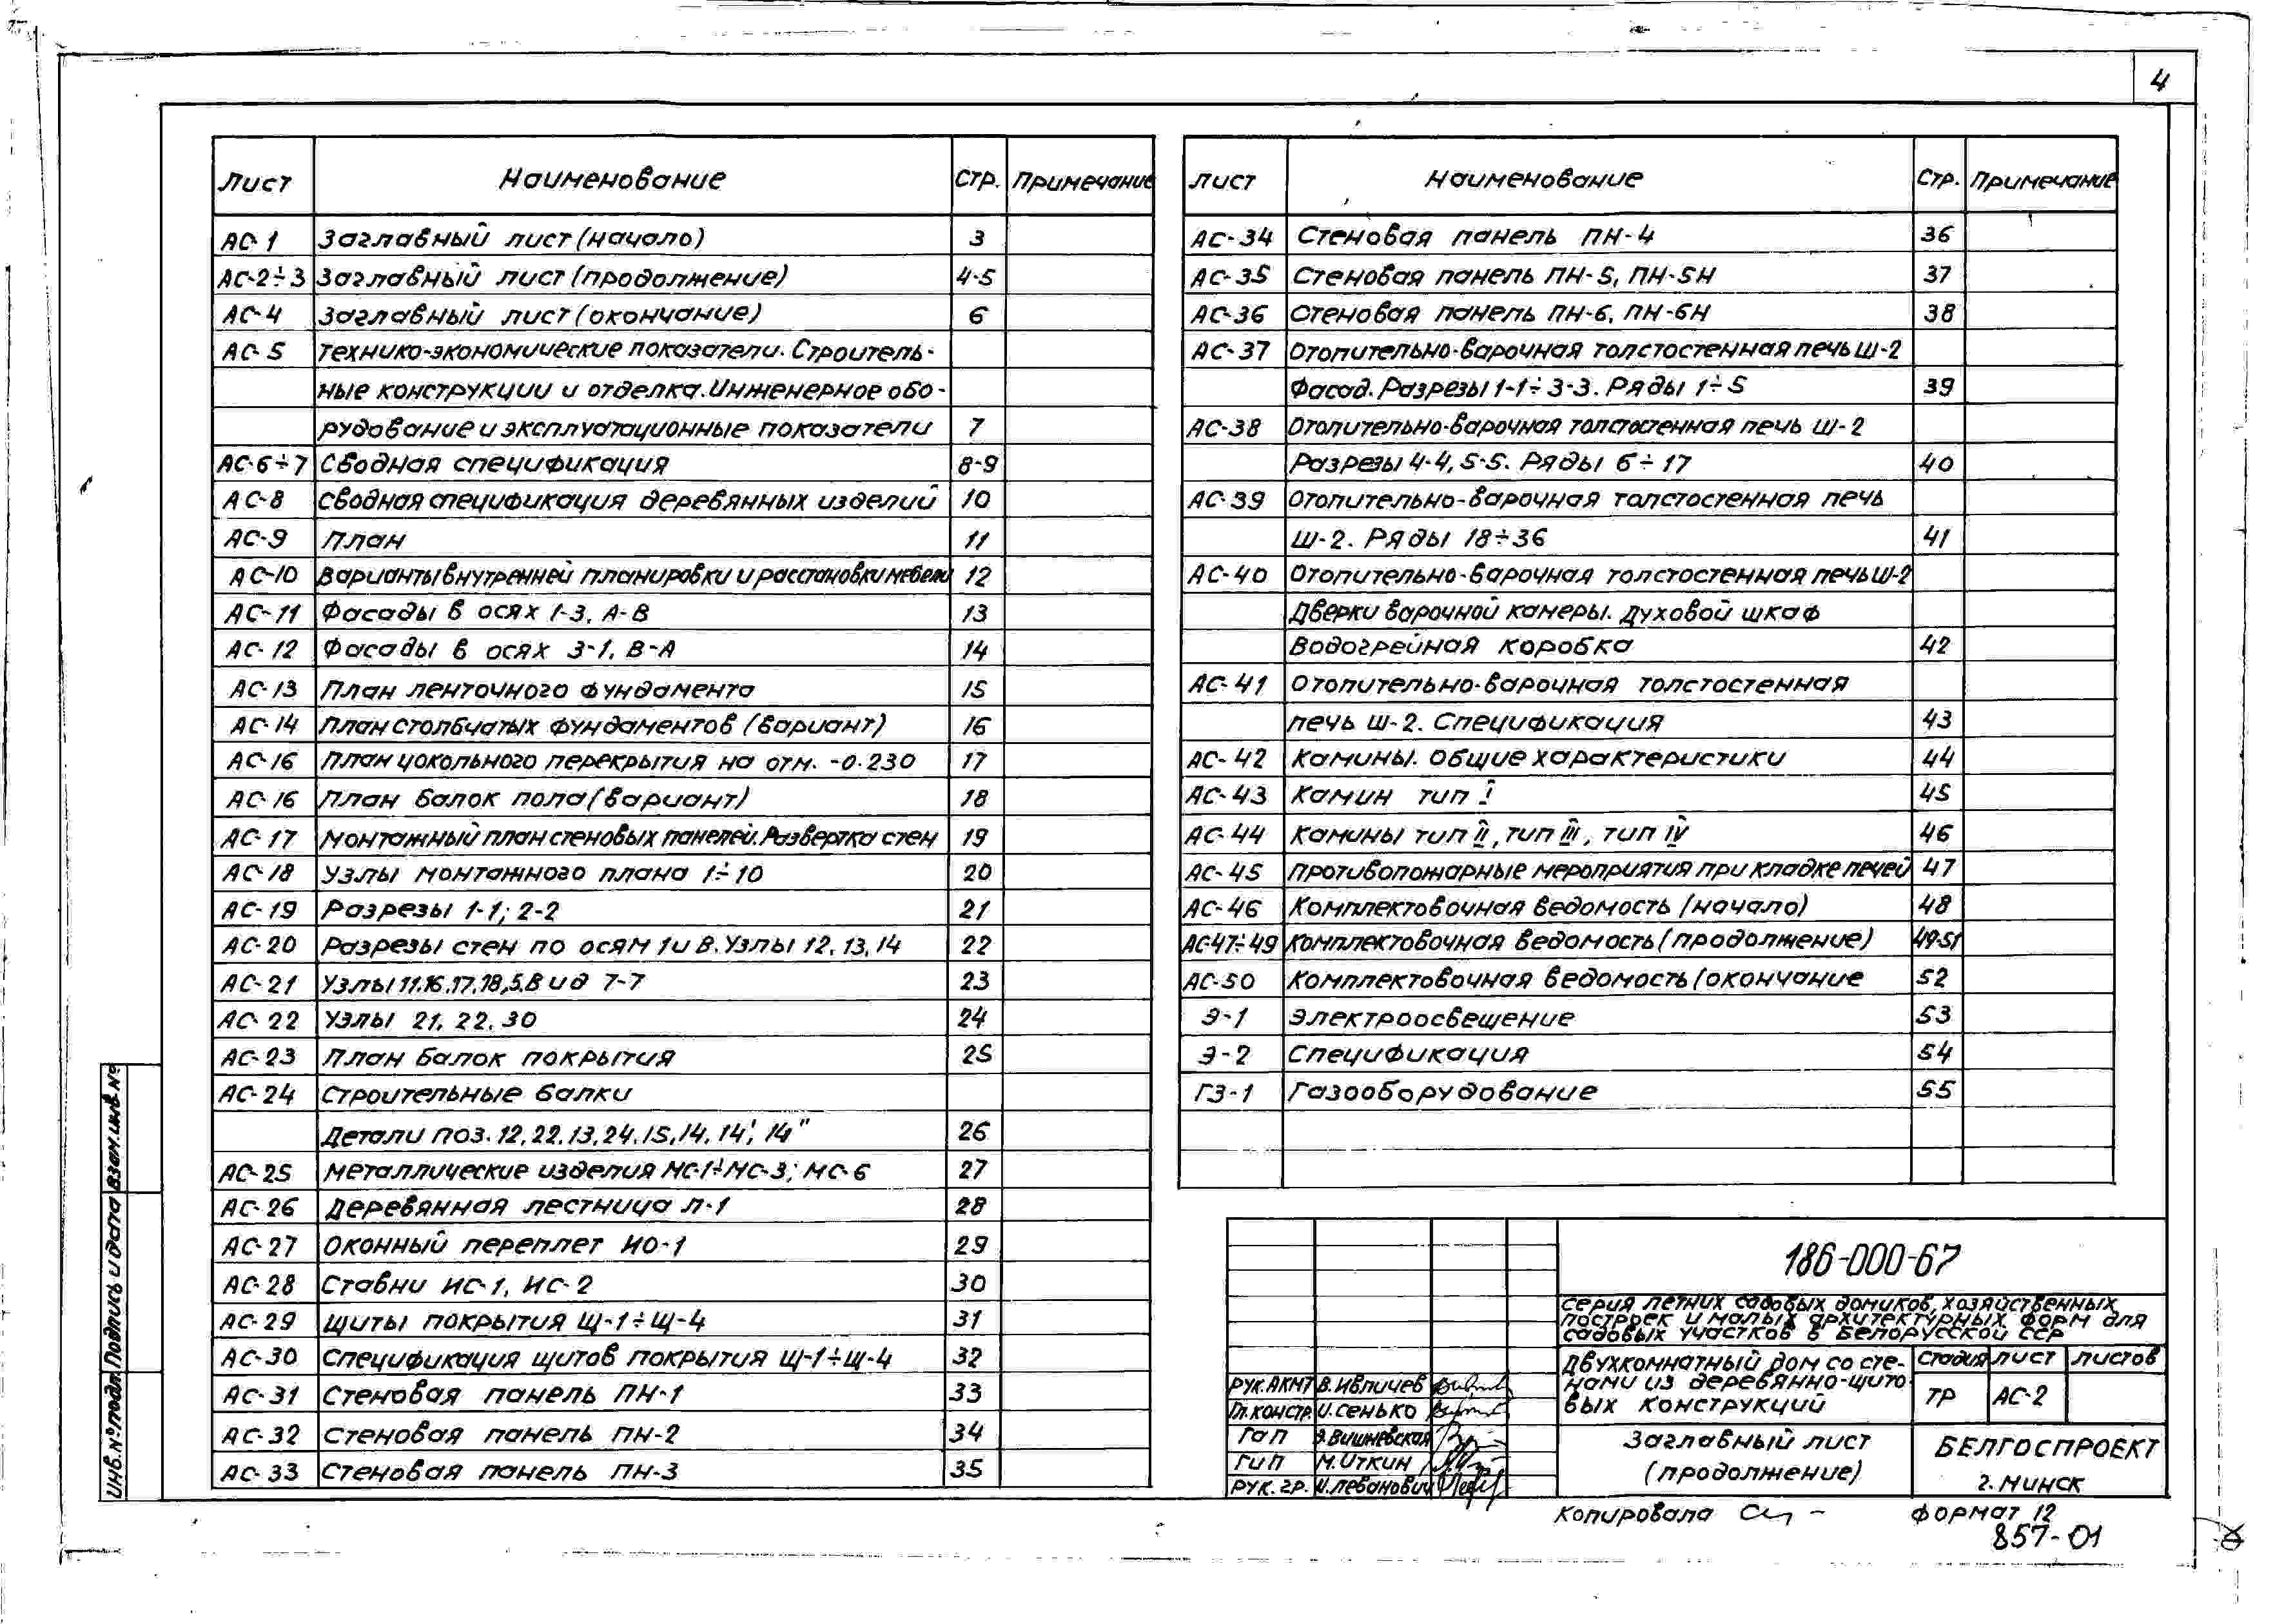 4
Лист Наименование Стр. Примечание
АС-1 Заглавный лист (начало) 3
АС-2÷3 Заглавный лист (продолжение) 4-5
АС-4 Заглавный лист (окончание) 6
АС-5 Технико-экономические показатели. Строитель-
ные конструкции и отделка. Инженерное обо-
рудование и эксплуатационные показатели 7
АС-6÷7 Сводная спецификация 8-9
АС-8 Сводная спецификация деревянных изделий 10
АС-9 План 11
АС-10 Варианты внутренней планировки и расстановки мебели 12
АС-11 Фасады в осях 1-3, А-В 13
АС-12 Фасады в осях 3-1, В-А 14
АС-13 План ленточного фундамента 15
АС-14 План столбчатых фундаментов (вариант) 16
АС-16 План цокольного перекрытия на отм. -0.230 17
АС-16 План балок пола (вариант) 18
АС-17 Монтажный план стеновых панелей. Развертка стен 19
АС-18 Узлы монтажного плана 1÷10 20
АС-19 Разрезы 1-1; 2-2 21
АС-20 Разрезы стен по осям 1 и В. Узлы 12, 13, 14 22
АС-21 Узлы 11.16.17.18,5.Вид 7-7 23
АС-22 Узлы 21, 22, 30 24
АС-23 План балок покрытия 25
АС-24 Строительные балки
Детали поз. 12, 22, 13, 24, 15, 14, 14', 14" 26
АС-25 Металлические изделия МС-1÷МС-3; МС-6 27
АС-26 Деревянная лестница Л-1 28
АС-27 Оконный переплет ИО-1 29
АС-28 Ставни ИС-1, ИС-2 30
АС-29 Щиты покрытия Щ-1÷Щ-4 31
АС-30 Спецификация щитов покрытия Щ-1÷Щ-4 32
АС-31 Стеновая панель ПН-1 33
АС-32 Стеновая панель ПН-2 34
АС-33 Стеновая панель ПН-3 35
Лист Наименование Стр. Примечание
АС-34 Стеновая панель ПН-4 36
АС-35 Стеновая панель ПН-5, ПН-5Н 37
АС-36 Стеновая панель ПН-6, ПН-6Н 38
АС-37 Отопительно-варочная толстостенная печь Ш-2
Фасад. Разрезы 1-1÷3-3. Ряды 1÷5 39
АС-38 Отопительно-варочная толстостенная печь Ш-2
Разрезы 4-4, 5-5. Ряды 6÷17 40
АС-39 Отопительно-варочная толстостенная печь
Ш-2. Ряды 18÷36 41
АС-40 Отопительно-варочная толстостенная печь Ш-2
Дверки варочной камеры. Духовой шкаф
Водогрейная коробка 42
АС-41 Отопительно-варочная толстостенная
печь Ш-2. Спецификация 43
АС-42 Камины. Общие характеристики 44
АС-43 Камин тип I 45
АС-44 Камины тип II, тип III, тип IV 46
АС-45 Противопожарные мероприятия при кладке печей 47
АС-46 Комплектовочная ведомость (начало) 48
АС-47÷49 Комплектовочная ведомость (продолжение) 49-51
АС-50 Комплектовочная ведомость (окончание 52
Э-1 Электроосвещение 53
Э-2 Спецификация 54
ГЗ-1 Газооборудование 55
186-000-67
Серия летних садовых домиков, хозяйственных
построек и малых архитектурных форм для
садовых участков в Белорусской ССР
Двухкомнатный дом со сте-
нами из деревянно-щито-
вых конструкций
Стадия Лист Листов
ТР АС-2
Рук. АКМТ В. Ивличев
Гл. констр. И. Сенько
ГАП Э. Вишневская
ГИП М. Иткин
Рук. гр. И. Леванович
Заглавный лист
(продолжение)
БЕЛГОСПРОЕКТ
г. Минск
Копировала
Формат 12
857-01
Инв. № подл. Подпись и дата Взам. инв. №